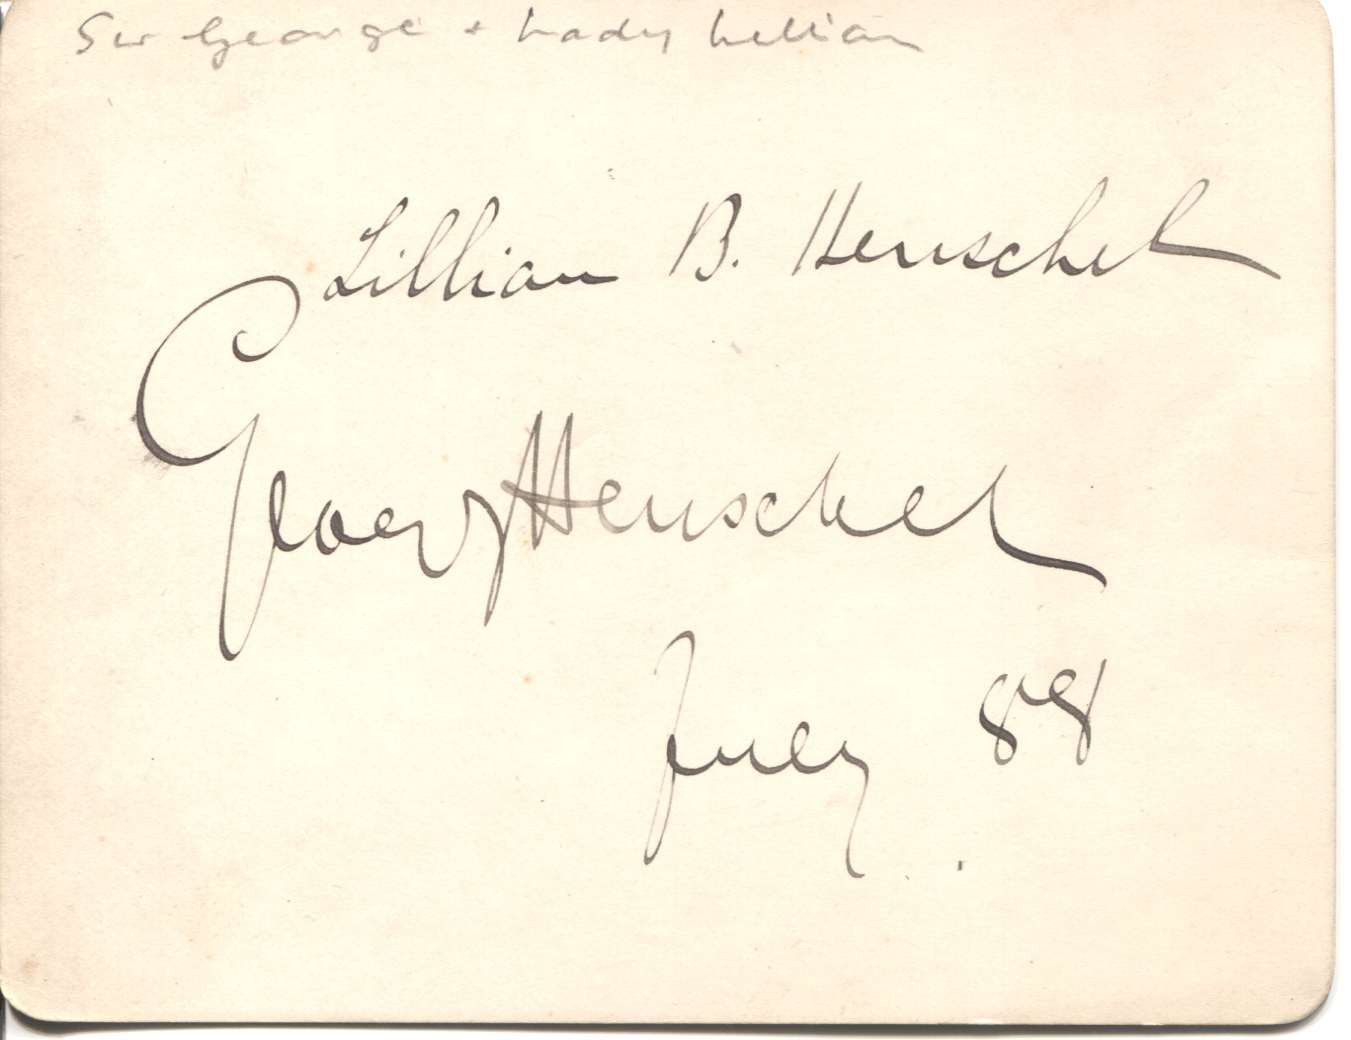 Sir George + Lady Lillian
Lillian B. Henschel
Georg Henschel
July 88